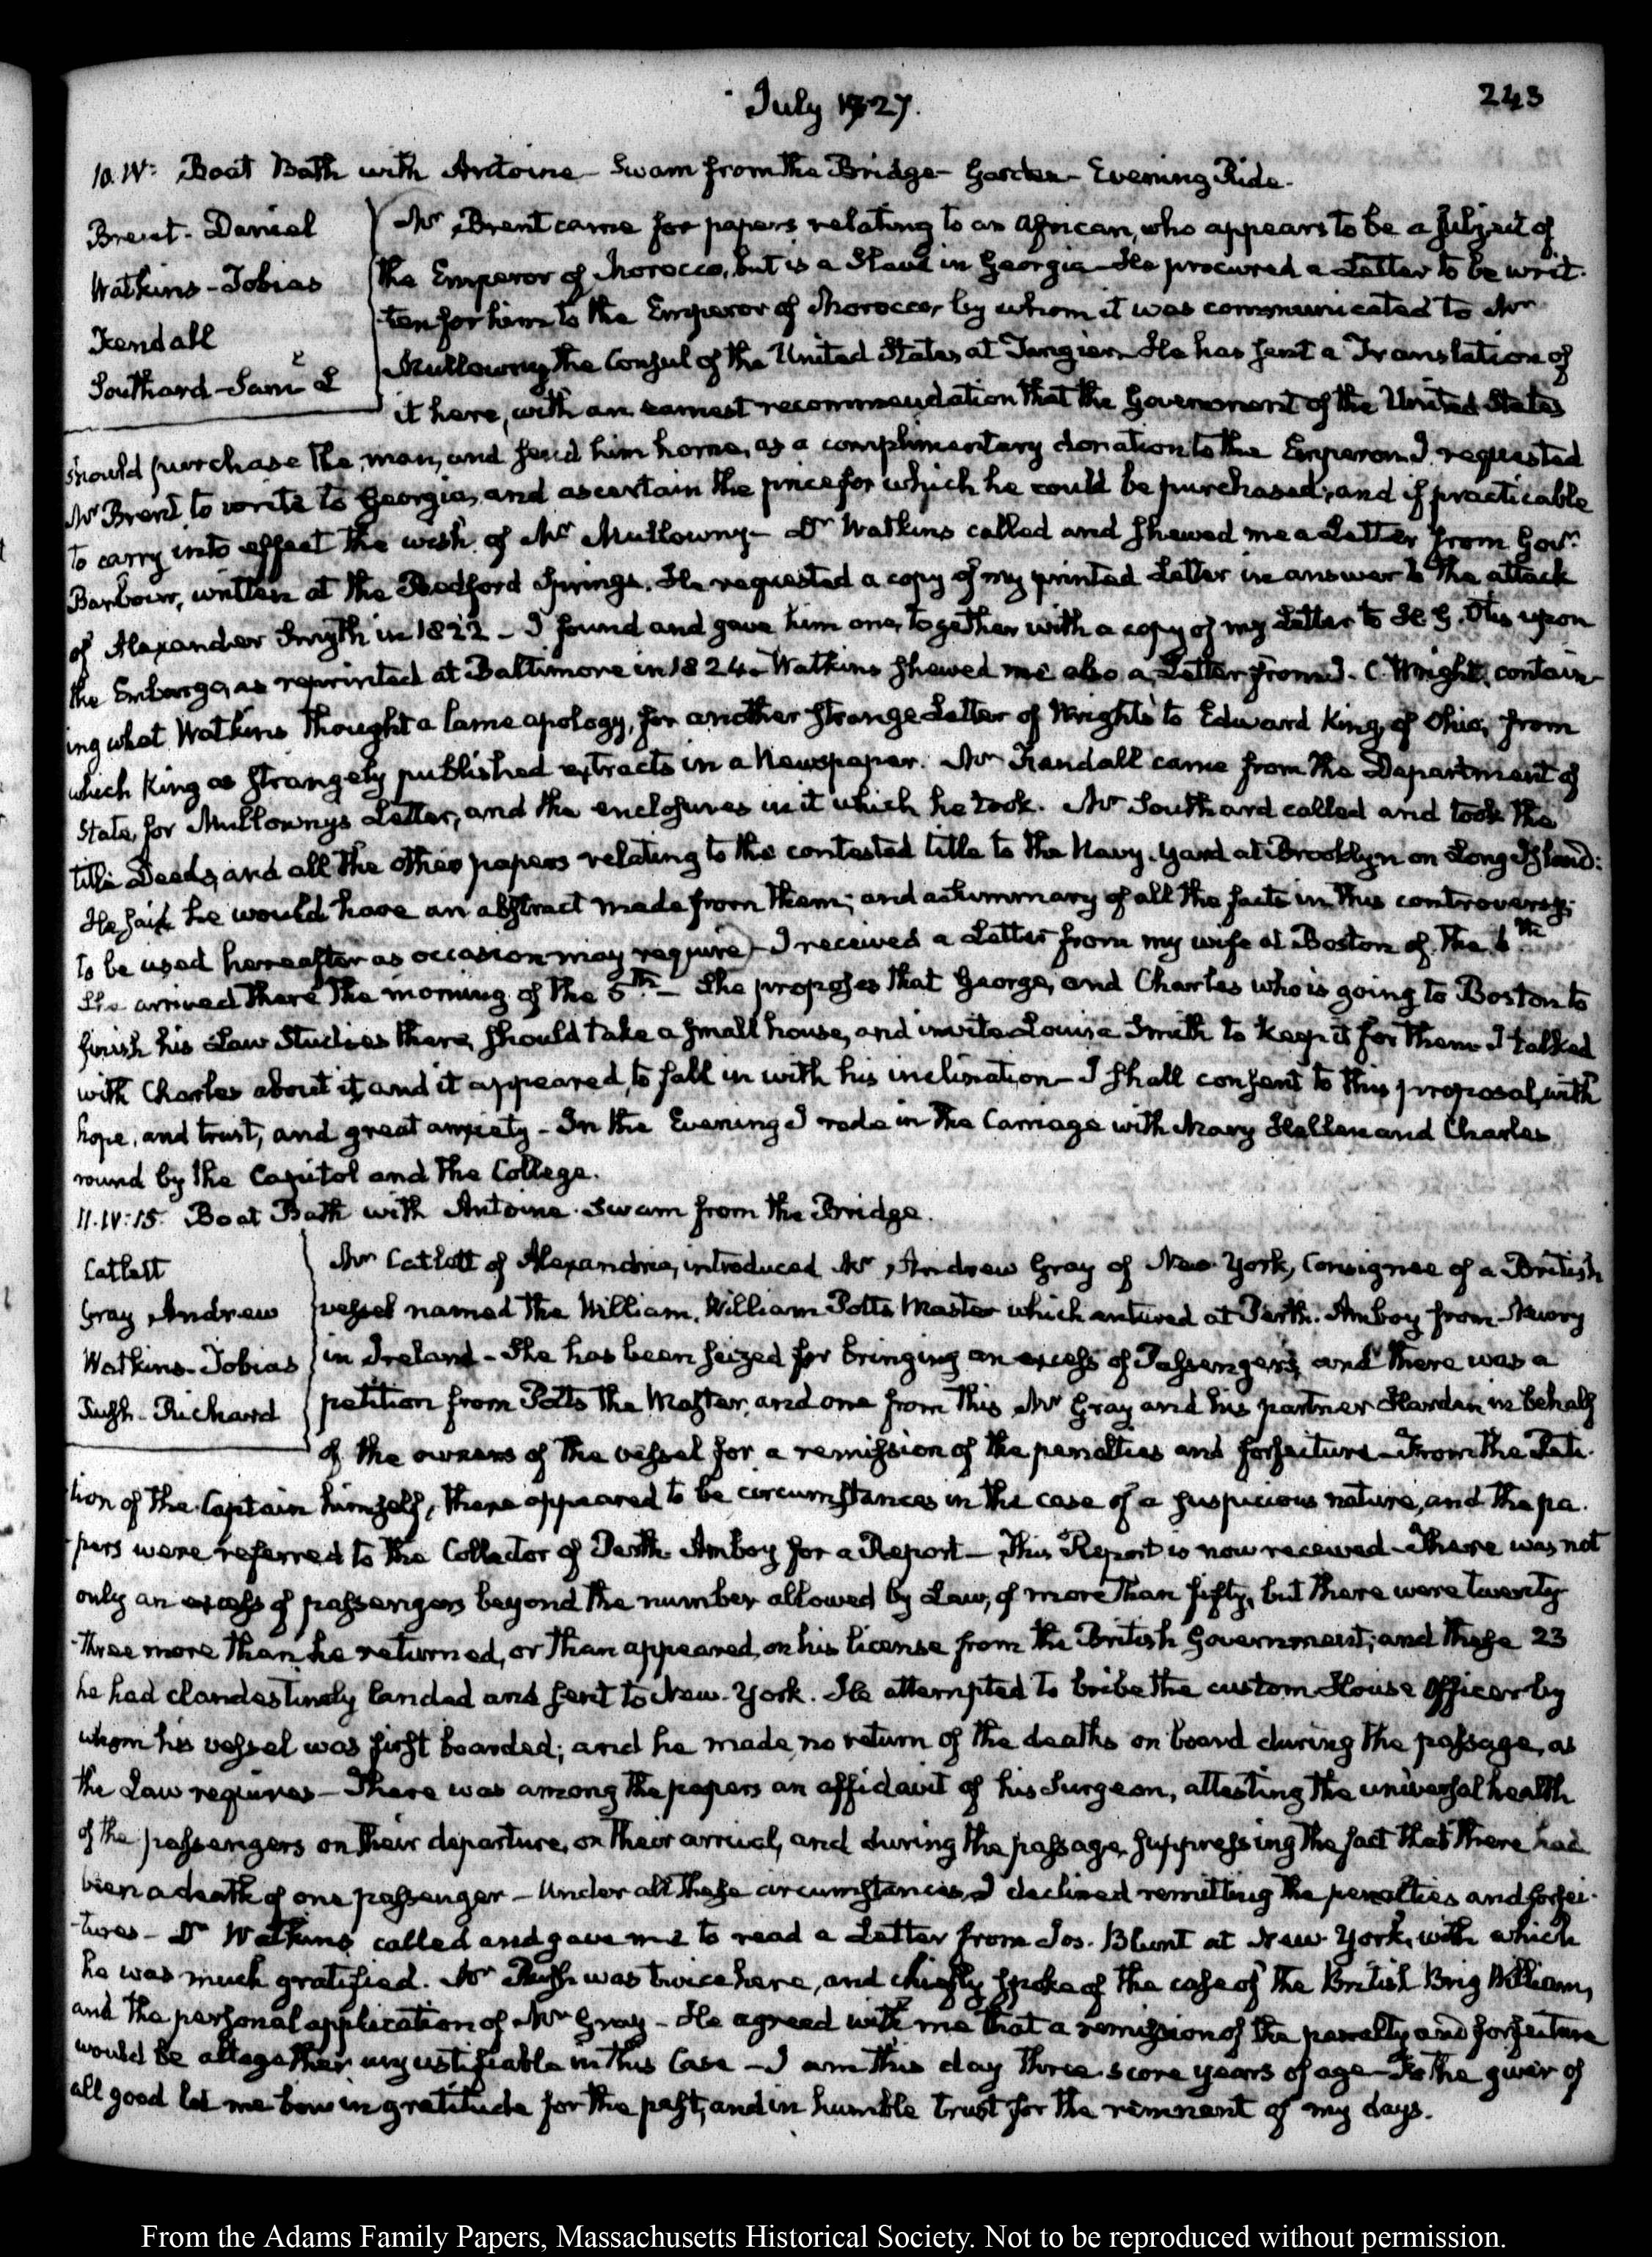 July 1827.
243
10. IV: Boat Bath with Antoine - Swam from the Bridge - Garden - Evening Ride.
Brent - Daniel
Watkins - Tobias
Kendall
Southard - Saml L
Mr Brent came for papers relating to an African, who appears to be a subject of
the Emperor of Morocco, but is a Slave in Georgia - He procured a Letter to be writ-
ten for him to the Emperor of Morocco, by whom it was communicated to Mr
Mullowny the Consul of the United States at Tangier - He has sent a Translation of
it here, with an earnest recommendation that the Government of the United States
should purchase the man, and send him home, as a complimentary donation to the Emperor. I requested
Mr Brent to write to Georgia, and ascertain the price for which he could be purchased; and if practicable
to carry into effect the wish of Mr Mullowny - Dr Watkins called and shewed me a Letter from Govr
Barbour, written at the Bedford Springs. He requested a copy of my printed Letter in answer to the attack
of Alexander Smyth in 1822 - I found and gave him one, together with a copy of my Letter to H. G. Otis upon
the Embargo, as reprinted at Baltimore in 1824. Watkins shewed me also a Letter from J. C. Wright, contain-
ing what Watkins thought a lame apology, for another strange Letter of Wright's to Edward King, of Ohio, from
which King as strangely published extracts in a Newspaper. Mr Kendall came from the Department of
State, for Mullowny's Letter, and the enclosures in it which he took. Mr Southard called and took the
title Deeds, and all the other papers relating to the contested title to the Navy-Yard at Brooklyn on Long-Island:
He said he would have an abstract made from them; and a summary of all the facts in this controversy;
to be used hereafter as occasion may require - I received a Letter from my wife at Boston of the 6th
She arrived there the morning of the 5th - She proposes that George, and Charles who is going to Boston to
finish his Law Studies there, should take a small house, and invite Louisa Smith to keep it for them - I talked
with Charles about it, and it appeared, to fall in with his inclination - I shall consent to this proposal, with
hope, and trust, and great anxiety - In the Evening I rode in the Carriage with Mary Hellen and Charles
round by the Capitol and the College.
11. IV: 15. Boat Bath with Antoine. Swam from the Bridge.
Catlett
Gray Andrew
Watkins - Tobias
Rush - Richard
Mr Catlett of Alexandria, introduced Mr Andrew Gray of New-York, Consignee of a British
vessel named the William, William Potts Master which entered at Perth-Amboy from Newry
in Ireland - She has been seized for bringing an excess of Passengers, and there was a
petition from Potts the Master, and one from this Mr Gray and his partner Harden in behalf
of the owners of the vessel for a remission of the penalties and forfeiture - From the Peti-
tion of the Captain himself, there appeared to be circumstances in the case of a suspicious nature, and the pa-
-pers were referred to the Collector of Perth-Amboy for a Report - This Report is now received - There was not
only an excess of passengers beyond the number allowed by Law, of more than fifty, but there were twenty
-three more than he returned, or than appeared on his license from the British Government; and these 23
he had clandestinely landed and sent to New-York. He attempted to bribe the custom-House Officer by
whom his vessel was first boarded; and he made no return of the deaths on board during the passage, as
the Law requires - There was among the papers an affidavit of his Surgeon, attesting the universal health
of the passengers on their departure, on their arrival, and during the passage, suppressing the fact that there had
been a death of one passenger - Under all these circumstances, I declined remitting the penalties and forfei-
-tures - Dr Watkins called and gave me to read a Letter from Jos. Blunt at New-York, with which
he was much gratified. Mr Rush was twice here, and chiefly spoke of the case of the British Brig William,
and the personal application of Mr Gray - He agreed with me that a remission of the penalty and forfeiture
would be altogether unjustifiable in this Case - I am this day three score years of age - To the giver of
all good let me bow in gratitude for the past, and in humble trust for the remnant of my days.
From the Adams Family Papers, Massachusetts Historical Society. Not to be reproduced without permission.